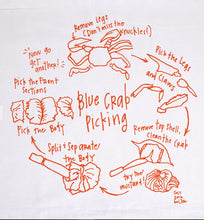 Remove Legs
(Don't miss the
Knuckles!)
Pick the Legs
and Claws
Remove Top Shell,
Clean the Crab
try that
mustard!
Split & Separate
the Body
Pick the Body
Pick the Front
Sections
Now go
get another!
Blue Crab
Picking